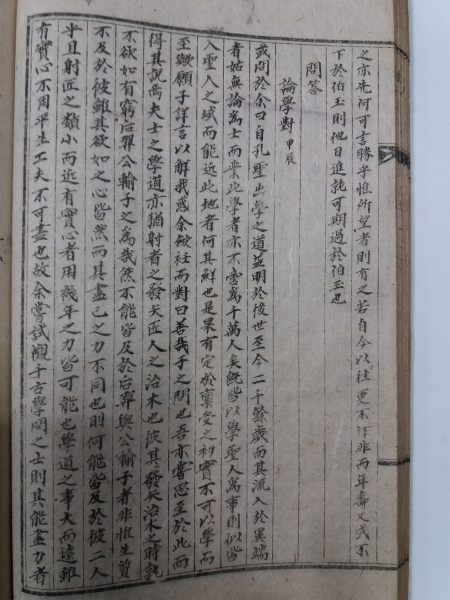 之亦先何可言勝乎惟所望者則有之若自今以往更不作非而年壽又或不
下於伯玉則他日進就可期過於伯玉也
問答
論學對 甲辰
或問於余曰自孔聖出學之道益明於後世至今二千餘歲而其流入於異端
者姑無論爲士而業此學者亦不啻爲千萬人矣旣皆以學聖人爲事則似皆
入聖人之域而能近此地者何其鮮也是果有定於稟受之初實不可以學而
至歟願子詳言以解我惑余斂衽而對曰善哉子之問也吾亦嘗思至於此而
得其說焉夫士之學道亦猶射者之發矢匠人之治木也彼其發矢治木之時孰
不欲如有窮后羿公輸子之爲哉然不能皆及於后羿與公輸子者非惟生質
不及於彼雖其欲如之心皆然而其盡己之力不同也則何能皆及於彼二人
乎且射匠之類小而近有實心者用幾年之力皆可能也學道之事大而遠雖
有實心不用平生工夫不可盡也故余嘗試觀千古學問之士則其能盡力者